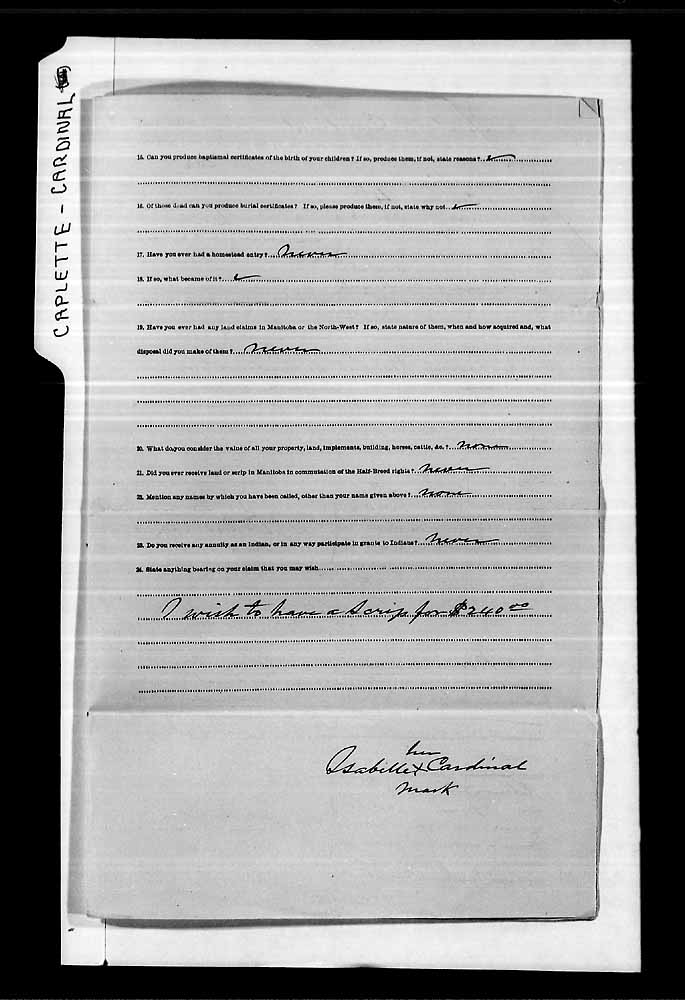 CAPLETTE - CARDINAL
15. Can you produce baptismal certificates of the birth of your children? If so, produce them, if not, state reasons?
16. Of those dead can you produce burial certificates? If so, please produce them, if not, state why not
17. Have you ever had a homestead entry? never
18. If so, what became of it?
19. Have you ever had any land claims in Manitoba or the North-West? If so, state nature of them, when and how acquired and, what
disposal did you make of them? never
20. What do you consider the value of all your property, land, implements, building, horses, cattle, &c.? none
21. Did you ever receive land or scrip in Manitoba in commutation of the Half-Breed rights? never
22. Mention any names by which you have been called, other than your name given above? none
23. Do you receive any annuity as an Indian, or in any way participate in grants to Indians? never
24. State anything bearing on your claim that you may wish
I wish to have a Scrip for $240 00
her
Isabelle X Cardinal
mark